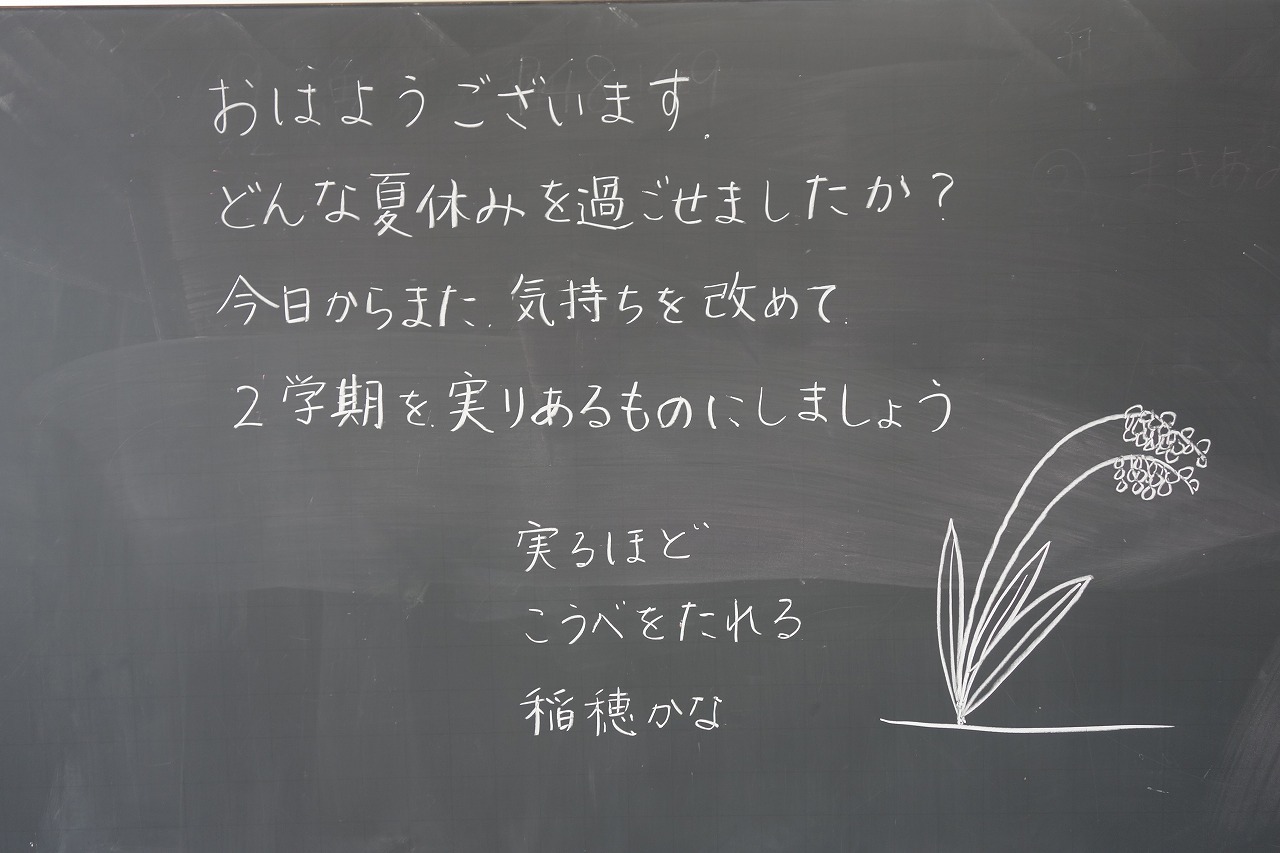 おはようございます.
どんな夏休みを過ごせましたか？
今日からまた、気持ちを改めて
2学期を実りあるものにしましょう
実るほど
こうべをたれる
稲穂かな